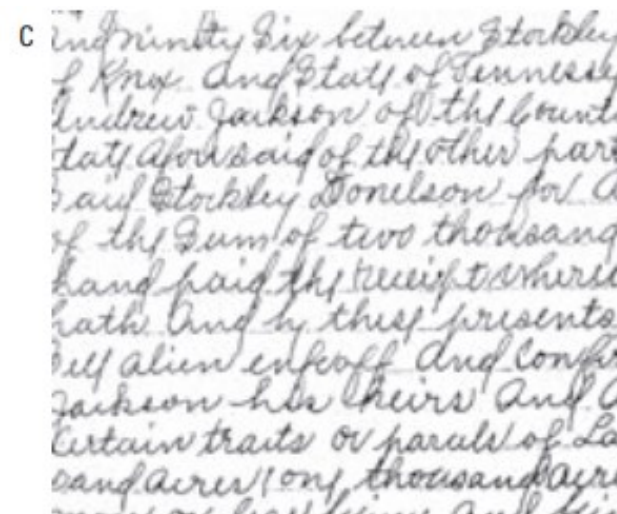 C
and ninety Six between Stockley
of Knox and State of Tennessee
Andrew Jackson of the Count
State aforesaid of the other part
Said Stockley Donelson for a
of the Sum of two thousand
hand paid the receipt where
hath and by these presents
Sell alien enfeoff and Confir
Jackson his heirs and a
Certain tracts or parcels of La
sand acres one thousand acre